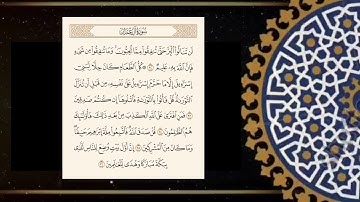 سورة آل عمران
لن تنالوا البر حتى تنفقوا مما تحبون وما تنفقوا من شيء
فإن الله به عليم ۞ كل الطعام كان حلا لبني
إسرائيل إلا ما حرم إسرائيل على نفسه من قبل أن تنزل
التوراة قل فأتوا بالتوراة فاتلوها إن كنتم صادقين
فمن افترى على الله الكذب من بعد ذلك فأولئك
هم الظالمون قل صدق الله فاتبعوا ملة إبراهيم حنيفا
وما كان من المشركين إن أول بيت وضع للناس للذي
ببكة مباركا وهدى للعالمين